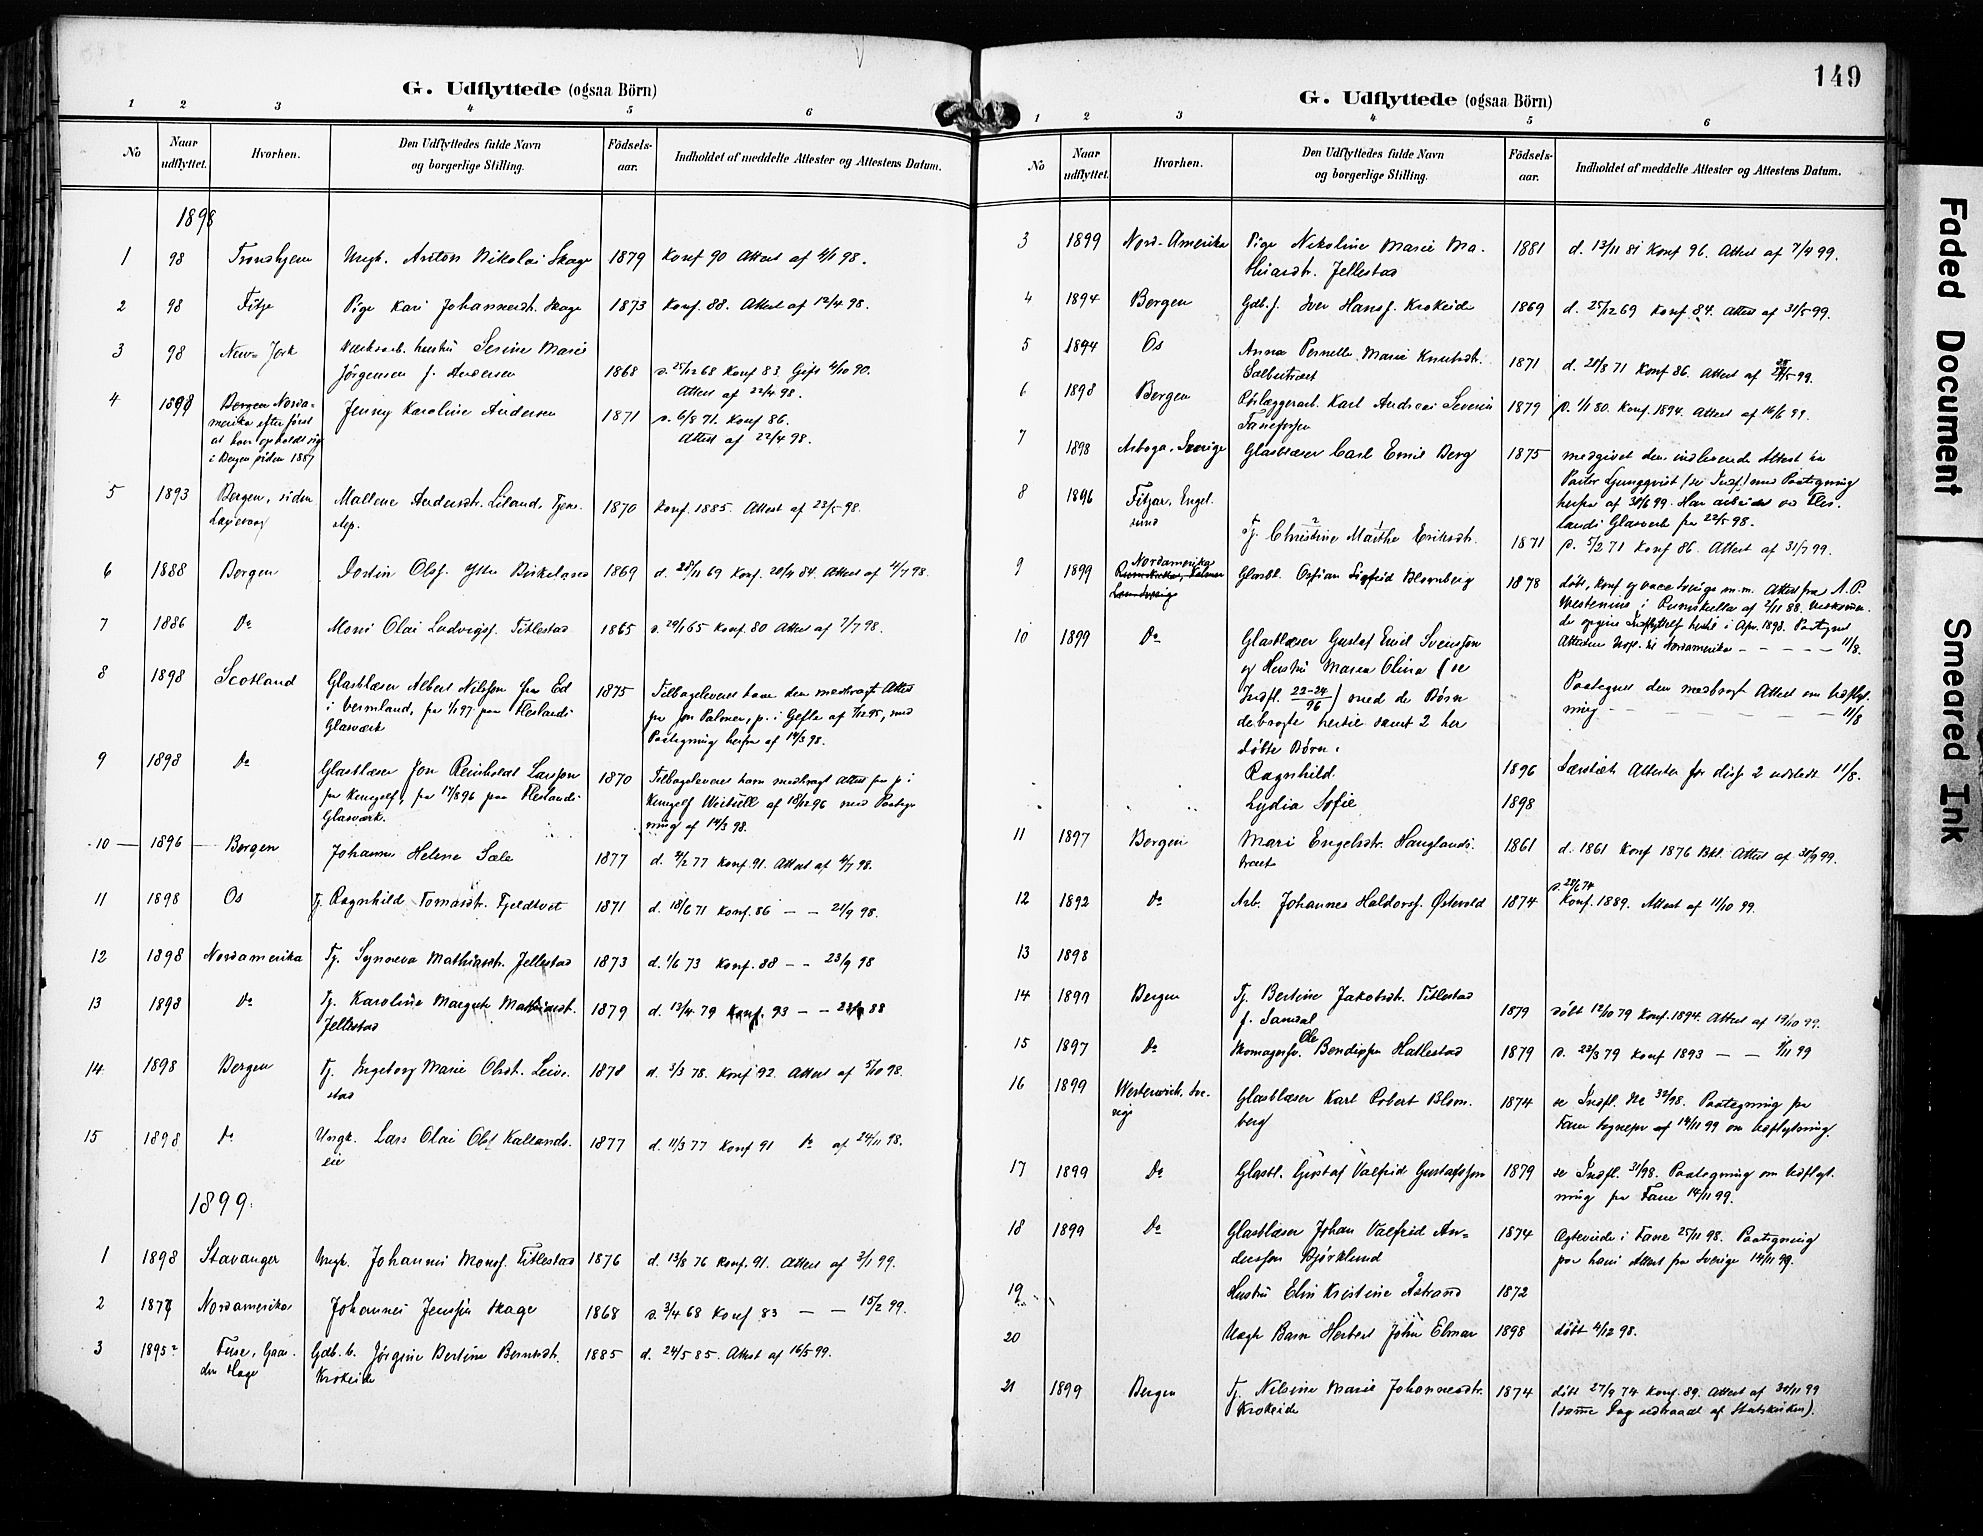 G. Udflyttede (ogsaa Börn)
1 2 3 4 5 6
No
Naar udflyttet.
Hvorhen.
Den Udflyttedes fulde Navn
og borgerlige Stilling.
Födsels-
aar.
Indholdet af meddelte Attester og Attestens Datum.
1898
1 98 Tronshjem Ungk. Anton Nikolai Skage 1879 Konf 90 Attest af 4/1 98.
2 98 Fitje Pige Kari Johannesdt. Skage 1873 Konf. 88. Attest af 12/4 98.
3 98 New-York hustru Serine Marie
Jørgensen f. Andersen 1868 d. 25/12 68 Konf 83. Gift 4/10 90.
Attest af 22/4 98.
4 1898 Bergen Norda-
merika efter først
at have opholdt sig
i Bergen siden 1887
Jenny Karoline Andersen 1871 d. 6/8 71. Konf 86.
Attest af 22/4 98.
5 1893 Bergen, siden
Mallene Andersdt. Liland, Tjene-
step. 1870 Konf. 1885. Attest af 23/5 98.
6 1888 Bergen Ols. Ytre Birkeland 1869 d. 28/11 69 Konf. 20/4 84. Attest af 4/7 98.
7 1886 Do Mons Olai Ludvigs. Titlestad 1865 d. 29/1 65 Konf. 80 Attest af 7/7 98.
8 1898 Scotland Glasblæser Albert Nilsson fra Ed
i Vermland, fra 1/1 97 paa Fleslands
Glasværk 1875 Tilbageleveret ham den medbragt Attest
fra Jon Palmer, p. i Gefle af 7/12 95, med
Paategning herfra af 14/3 98.
9 1898 Do Glasblæser Jon Reinholdt Larsson
fra Kungelf, fra 17/8 96 paa Fleslands
Glasværk. 1870 Tilbageleveret ham medbragt Attest fra p. i
Kungelf af 18/12 96 med Paateg-
ning af 14/3 98.
10 1896 Bergen Johanne Helene Sæle 1877 d. 4/2 77 Konf. 91. Attest af 4/7 98.
11 1898 Os Tj. Ragnhild Tomasdt. Fjeldtvet 1871 d. 18/6 71 Konf. 86 — — 21/9 98.
12 1898 Nordamerika Tj. Synneva Mathiasdt. Jellestad 1873 d. 1/6 73 Konf. 88 — — 23/9 98
13 1898 Do Tj. Karoline Margrete Mathiasdt.
Jellestad 1879 d. 13/4 79 Konf. 93 — — 23/9 88
14 1898 Bergen Tj. Ingeborg Marie Olsdt. Leiv-
stad 1878 d. 3/3 78. Konf 92. Attest af 5/10 98.
15 1898 Do Ungk. Lars Olai Ols Kallands-
eie 1877 d. 11/3 77 Konf 91 Do af 24/11 98.
1899.
1 1898 Stavanger Ungk. Johannes Monss. Titlestad 1876 d. 13/8 76 Konf. 91. Attest af 3/1 99.
2 Nordamerika Johannes Jenssen Skage 1868 d. 3/4 68 Konf 83 — — 15/2 99.
3 1895? Fuse, Gaar-
den Hage Gdb. b. Jørgine Bertine Berntsdt.
Krokeide 1885 d. 24/5 85. Attest af 16/5 99.
149
G. Udflyttede (ogsaa Börn)
1 2 3 4 5 6
No
Naar udflyttet.
Hvorhen.
Den Udflyttedes fulde Navn
og borgerlige Stilling.
Födsels-
aar.
Indholdet af meddelte Attester og Attestens Datum.
3 1899 Nord-Amerika Pige Nikoline Marie Ma-
thiasdt. Jellestad 1881 d. 13/11 81 Konf 96. Attest af 7/4 99.
4 1894 Bergen Gdb. s. Iver Hanss. Krokeide 1869 d. 25/12 69 Konf 84. Attest af 31/5 99.
5 1894 Os Anna Pernelle Marie Knutsdt.
1871 d. 20/8 71 Konf 86. Attest af 25/5 99.
6 1898 Bergen Rørlæggerarb. Karl Andreas Severin
1879 d. 1/1 80. Konf. 1894. Attest af 16/6 99.
7 1898 Arboga, Sverige Glasblæser Carl Emil Berg 1875 medgivet den indleverede Attest fra
Pastor Ljungqvist (se Indfl.) med Paategning
herfra af 30/6 99. Har arbeidet ved Fles-
lands Glasverk fra 22/5 98.
8 1896 Fitjar, Engel-
sund Tj. Christine Marthe Eriksdt. 1871 d. 5/2 71 Konf 86. Attest af 31/7 99.
9 1899 Nordamerika
Glasbl. Ossian Sigfrid Blomberg 1878 døbt, konf. og vaccineret m.m. Attest fra A. P.
Westenius i Rumskulla af 2/11 88.
i Apr. 1898.
Attesten Udfl. til Nordamerika — — — — 11/8.
10 1899 Do Glasblæser Gustaf Emil Svensson
og Hustru Maria Olina (se
Indfl. 22-24/96) med de Børn
de bragte hertil samt 2 her
døbte Børn:
Paategnet den medbragt Attest om Udflyt-
ning — — — — — 11/8
Ragnhild 1896 Særskilt Attester for disse 2 udstedt 11/8.
Lydia Sofie 1898
11 1897 Bergen Mari Engelsdt. Hauglands-
træet 1861 d. 1861 Konf 1876 Bkl. Attest af 30/9 99.
12 1892 Do Arb. Johannes Haldors. Østevold 1874 d. 28/6 74
Konf. 1889. Attest af 11/10 99.
13 1898
14 1899 Bergen Tj. Bertine Jakobsdt. Titlestad
f. Sandal 1879 døbt 12/10 79 Konf. 1894. Attest af 19/10 99.
15 1897 Do Skomagersv. Ole Bendixsen Hatlestad 1879 d. 23/3 79 Konf 1893 — — 9/11 99
16 1899 Westerwik, Sve-
rige Glasblæser Karl Robert Blom-
berg 1874 se Indfl. No 32/98. Paategning fra
Fane Sognepr. af 14/11 99 om Udflytning.
17 1899 Do Glasbl. Gustaf Valfrid Gustafsson 1879 se Indfl. 31/98. Paategning om Udflyt-
ning fra Fane 14/11 99.
18 1899 Do Glasblæser Johan Valfrid An-
dersson Björklund 1874 Ægteviede i Fane 25/11 98. Paategning
paa hans Attest fra Sverige 14/11 99.
19 Hustru Elin Kristine Åstrand 1872
20 Uægte Barn Herbert John Elmar 1898 døbt 4/12 98.
21 1899 Bergen Tj. Nilsine Marie Johannesdt.
Krokeide 1874 døbt 27/9 74 Konf. 89. Attest af 30/11 99
(samme Dag udtraadt af Statskirken).
Faded Document
Smeared Ink